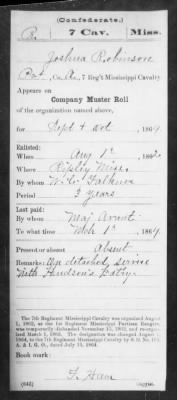 (Confederate.)
R. 7 Cav. Miss.
Joshua Robinson
Pvt, Co. A, 7 Reg't Mississippi Cavalry
Appears on
Company Muster Roll
of the organization named above,
for Sept & Oct, 1864.
Enlisted:
When Aug 1st, 1862.
Where Ripley Miss.
By whom W. C. Falkner
Period 3 years
Last paid:
By whom Maj Avent
To what time Mch 1st, 1864.
Present or absent Absent
Remarks: On detached service
with Hudson's Batry.
The 7th Regiment Mississippi Cavalry was organized August
1, 1862, as the 1st Regiment Mississippi Partisan Rangers,
was temporarily disbanded November 15, 1862, and reorgan-
ized March 1, 1863. The designation was changed August
1864, to the 7th Regiment Mississippi Cavalry by S. O. No.
A. & I. G. O., dated July 1864.
Book mark:
F. Ham
(642) Copyist.